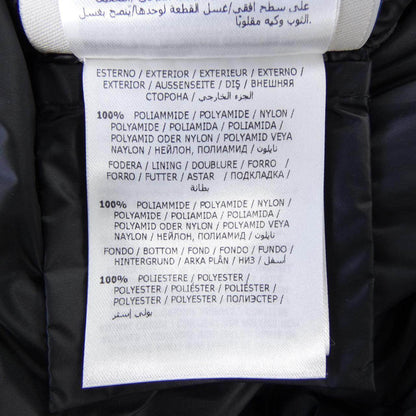 على سطح افقي/غسل القطعة لوحدها/ينصح بغسل
الثوب وكيه مقلوبًا.
ESTERNO / EXTERIOR / EXTERIEUR / EXTERNO /
EXTERIOR / AUSSENSEITE / DIŞ / ВНЕШНЯЯ
СТОРОНА / الجزء الخارجي /
100% POLIAMMIDE / POLYAMIDE / NYLON /
POLYAMIDE / POLIAMIDA / POLIAMIDA /
POLYAMID ODER NYLON / POLYAMID VEYA
NAYLON / НЕЙЛОН, ПОЛИАМИД / نايلون /
FODERA / LINING / DOUBLURE / FORRO /
FORRO / FUTTER / ASTAR / ПОДКЛАДКА /
بطانة
100% POLIAMMIDE / POLYAMIDE / NYLON /
POLYAMIDE / POLIAMIDA / POLIAMIDA /
POLYAMID ODER NYLON / POLYAMID VEYA
NAYLON / НЕЙЛОН, ПОЛИАМИД / نايلون /
FONDO / BOTTOM / FOND / FONDO / FUNDO /
HINTERGRUND / ARKA PLÂN / НИЗ / أسفل /
100% POLIESTERE / POLYESTER /
POLYESTER / POLIÉSTER / POLIÉSTER /
POLYESTER / POLYESTER / ПОЛИЭСТЕР /
بولي إستر